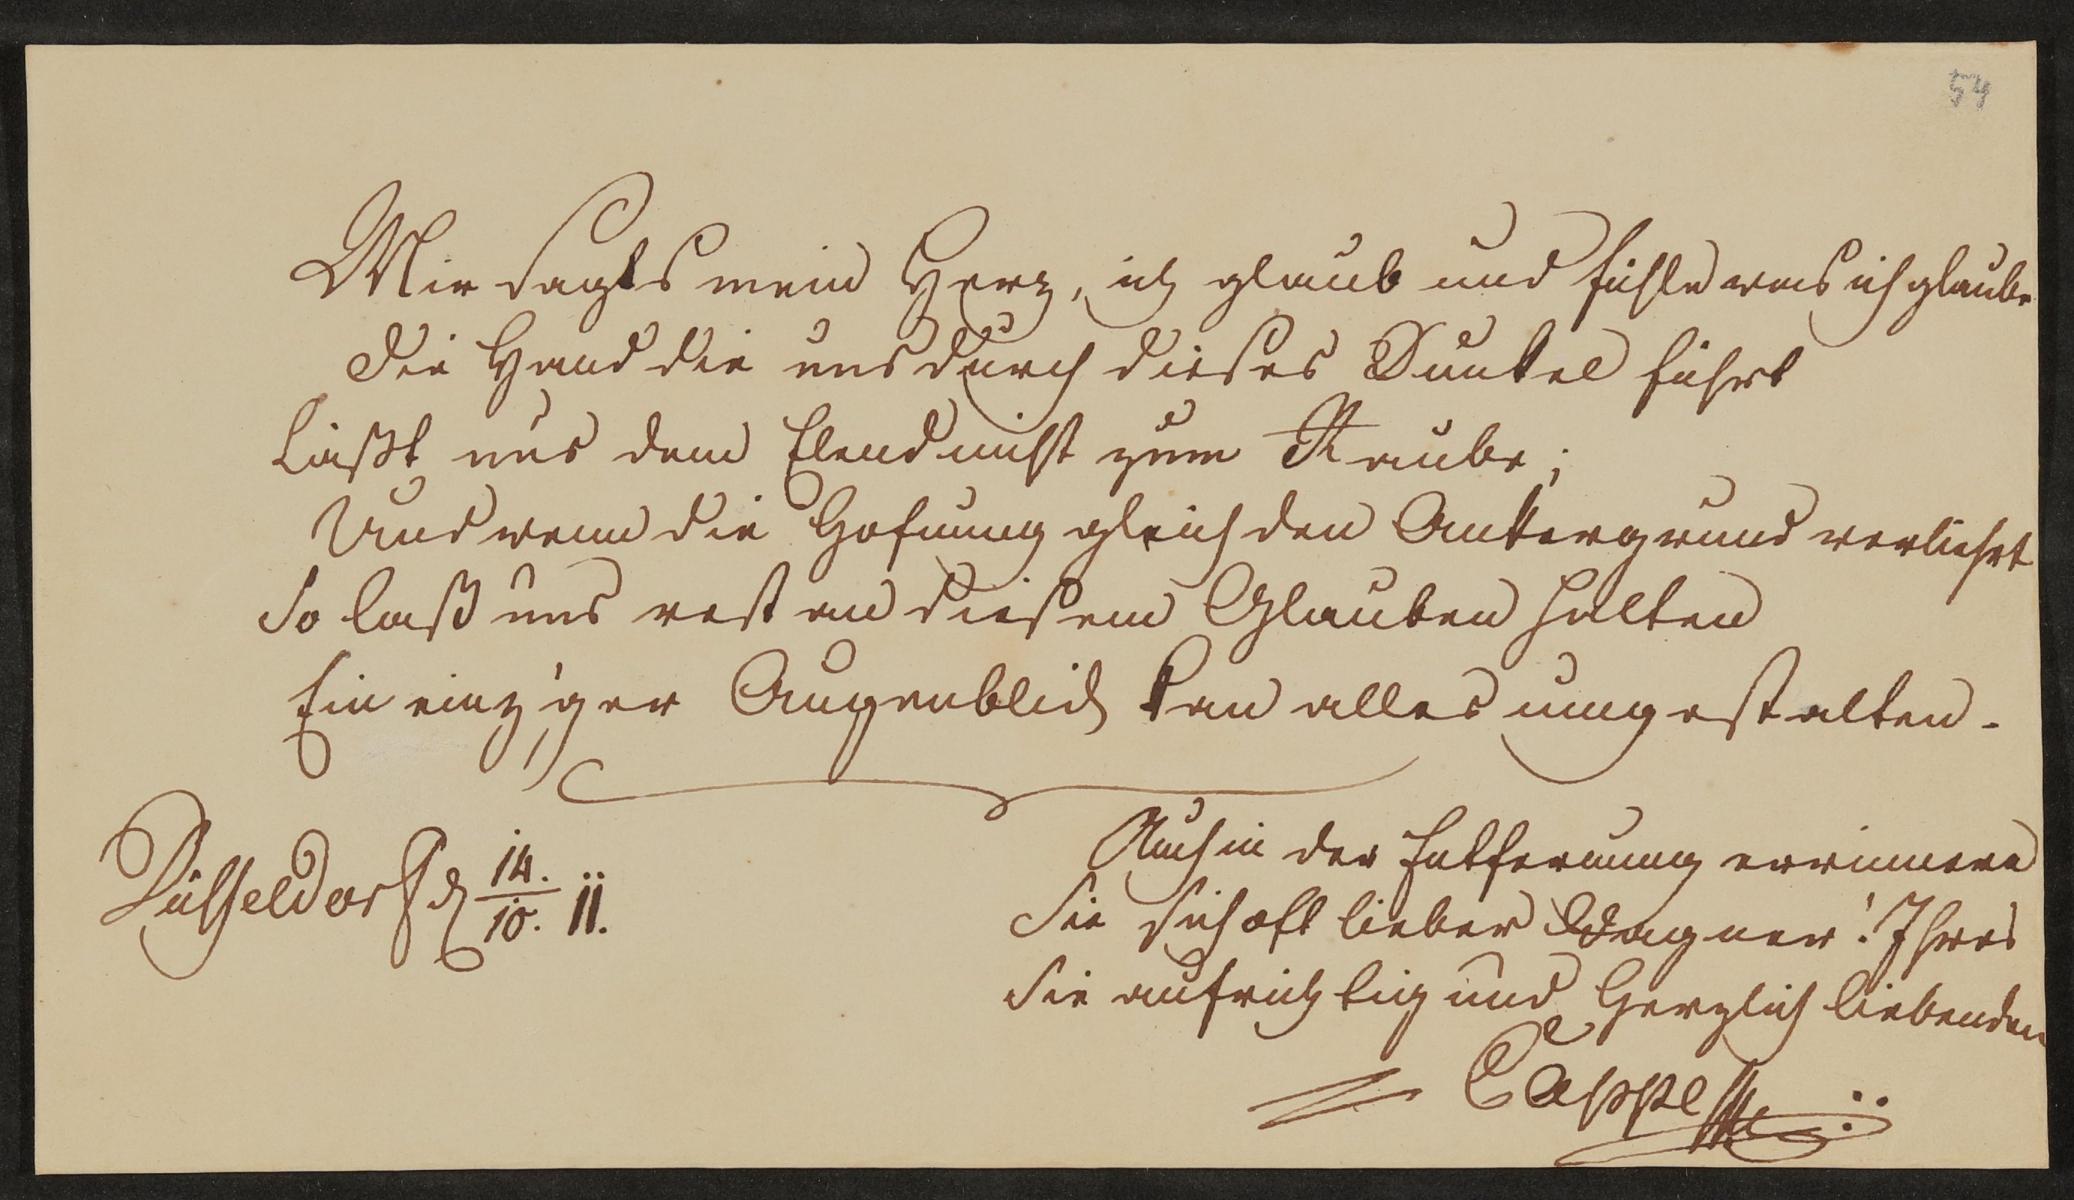 54
Mir sagts mein Herz, ich glaub und fühle was ich glaube
Die Hand die uns durch dieses Dunkel führt
Läßt uns dem Elend nicht zum Raube;
Und wenn die Hofnung gleich den Ankergrund verliehrt
So laß uns vest an diesem Glauben halten
Ein einz'ger Augenblick kan alles umgestalten.
Düsseldorf d 14./10. 11.
Auch in der Entfernung errinnere
Sie sich oft lieber Wagner! Ihres
Sie aufrichtig und Herzlich liebenden
Cappel